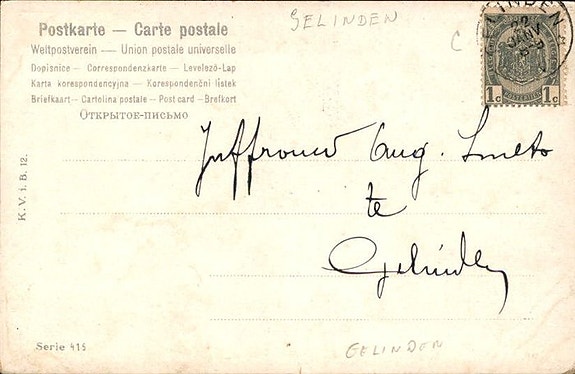 Postkarte — Carte postale
Weltpostverein — Union postale universelle
Dopisnice — Correspondenzkarte — Levelező-Lap
Karta korespondencyjna — Korespondenční lístek
Briefkaart — Cartolina postale — Post card — Brefkort
Открытое-письмо
GELINDEN
C
GELINDEN
JANV
1c 1c
Juffrouw Aug. Smets
te
Gelinden
K. V. i. B. 12.
Serie 415
GELINDEN